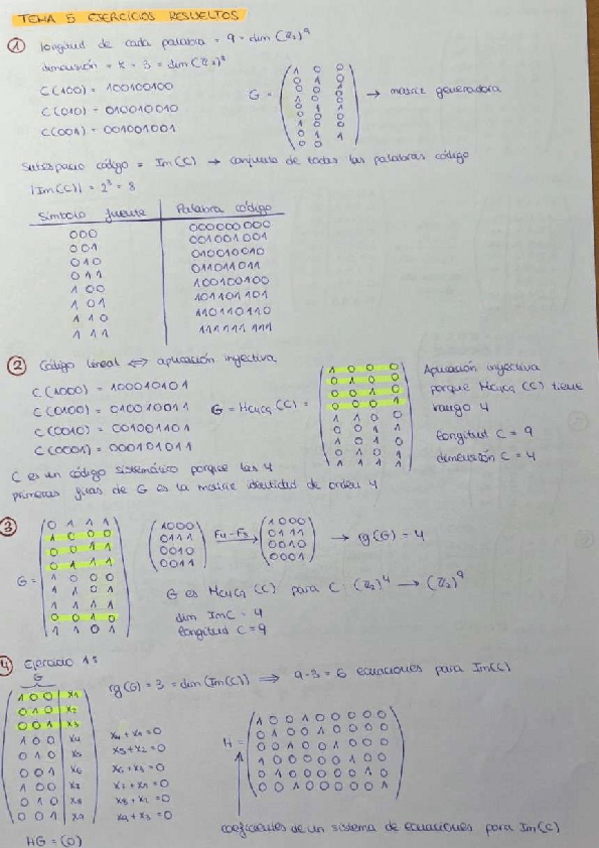 TEMA 5 EJERCICIOS RESUELTOS
① longitud de cada palabra = 9 = dim (Z₂)⁹
dimensión = k = 3 = dim (Z₂)³
C(100) = 100100100
C(010) = 010010010
C(001) = 001001001
G =
1 0 0
0 1 0
0 0 1
1 0 0
→ matriz generadora
Subespacio código = Im(C) → conjunto de todas las palabras código
|Im(C)| = 2³ = 8
Símbolo fuente | Palabra código
000 | 000000000
001 | 001001001
010 | 010010010
011 | 011011011
100 | 100100100
101 | 101101101
110 | 110110110
111 | 111111111
② Código lineal ⟺ aplicación inyectiva
C(1000) = 100010101
C(0100) = 010010011
C(0010) = 001001101
C(0001) = 000101011
G = M_C4,C9 (C) =
1 0 0 0
0 1 0 0
0 0 1 0
0 0 0 1
1 1 0 0
0 0 1 1
1 0 1 0
0 1 0 1
1 1 1 1
Aplicación inyectiva
porque M_C4,C9 (C) tiene
rango 4
longitud C = 9
dimensión C = 4
C es un código sistemático porque las 4
primeras filas de G es la matriz identidad de orden 4
③ G =
0 1 1 1
1 0 0 0
0 0 1 1
0 1 1 1
1 0 0 0
1 1 0 1
1 1 1 1
0 0 1 0
1 1 0 1
1000
0111
0010
0011
F4-F3
1000
0111
0010
0001
→ rg(G) = 4
G es M_C4,C9 (C) para C: (Z₂)⁴ → (Z₂)⁹
dim Im C = 4
longitud C = 9
④ Ejercicio 1:
G
1 0 0 | x₁
0 1 0 | x₂
0 0 1 | x₃
1 0 0 | x₄
0 1 0 | x₅
0 0 1 | x₆
1 0 0
0 1 0 | x₈
0 0 1 | x₉
HG = (0)
rg(G) = 3 = dim(Im(C)) ⟹ 9-3 = 6 ecuaciones para Im(C)
x₄ + x₁ = 0
x₅ + x₂ = 0
x₆ + x₃ = 0
x₇ + x₁ = 0
x₈ + x₂ = 0
x₉ + x₃ = 0
H =
1 0 0 1 0 0 0 0 0
0 1 0 0 1 0 0 0 0
0 0 1 0 0 1 0 0 0
1 0 0 0 0 0 1 0 0
0 1 0 0 0 0 0 1 0
coeficientes de un sistema de ecuaciones para Im(C)